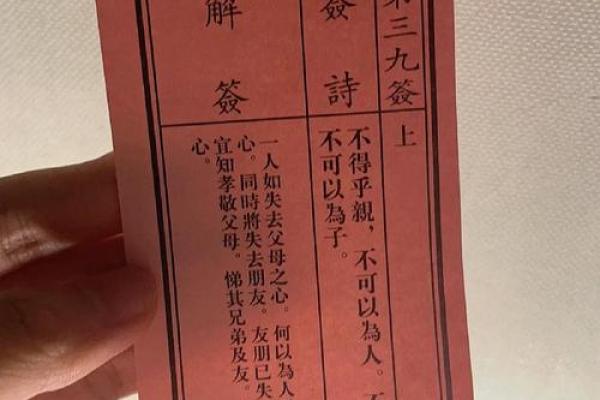 第三九簽
上
簽詩
不得乎親，不可以為人。不
不可以為子。
解簽
一人如失去父母之心。何以為人
心。同時將失去朋友。友朋已失
宜知孝敬父母。悌其兄弟及友。
心。